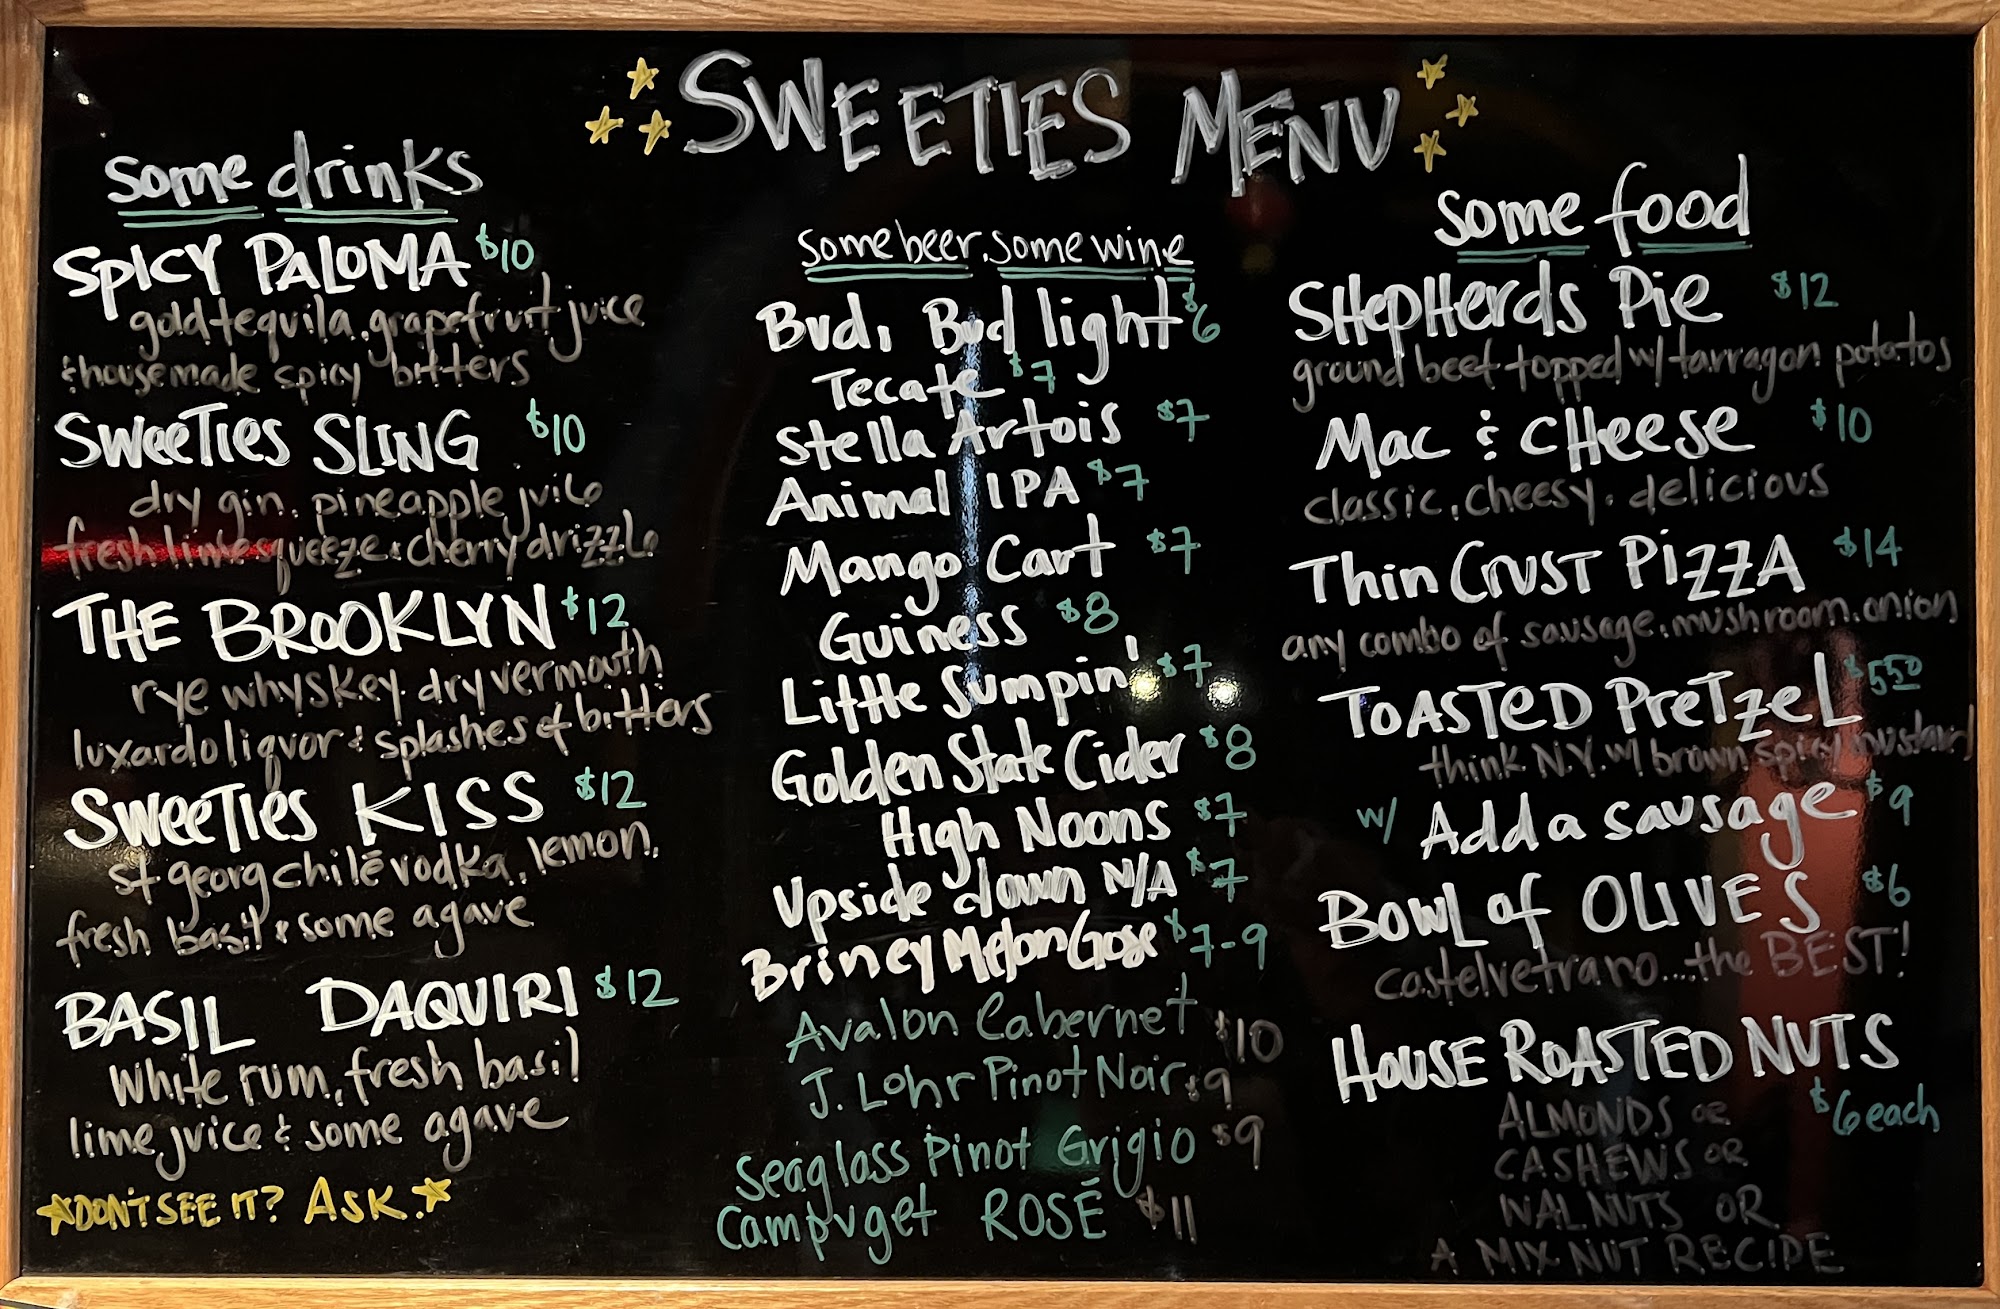 SWEETIES MENU
some drinks
SPICY PALOMA $10
gold tequila, grapefruit juice
& housemade spicy bitters
SWEETIES SLING $10
dry gin, pineapple juice
fresh lime squeeze & cherry drizzle
THE BROOKLYN $12
rye whyskey, dry vermouth
luxardo liquor & splashes of bitters
SWEETIES KISS $12
st georg chilē vodka, lemon,
fresh basil & some agave
BASIL DAQUIRI $12
white rum, fresh basil
lime juice & some agave
DON'T SEE IT? ASK.
some beer. some wine
Bud, Bud light $6
Tecate $7
Stella Artois $7
Animal IPA $7
Mango Cart $7
Guiness $8
Little Sumpin' $7
Golden State Cider $8
High Noons $7
Upside down N/A $7
Briney Melon Gose $7-9
Avalon Cabernet $10
J. Lohr Pinot Noir $9
Seaglass Pinot Grigio $9
Campuget ROSĒ $11
some food
SHepHerds Pie $12
ground beef topped w/ tarragon potatos
Mac & cHeese $10
classic, cheesy, delicious
Thin CRUST PiZZA $14
any combo of sausage, mushroom, onion
TOASTED PreTzeL $5.50
think N.Y. w/ brown spicy mustard
w/ Add a sausage $9
BOWL of OLIVES $6
castelvetrano....the BEST!
HOUSE ROASTED NUTS
$6 each
ALMONDS or
CASHEWS OR
WALNUTS OR
A MIX NUT RECIPE